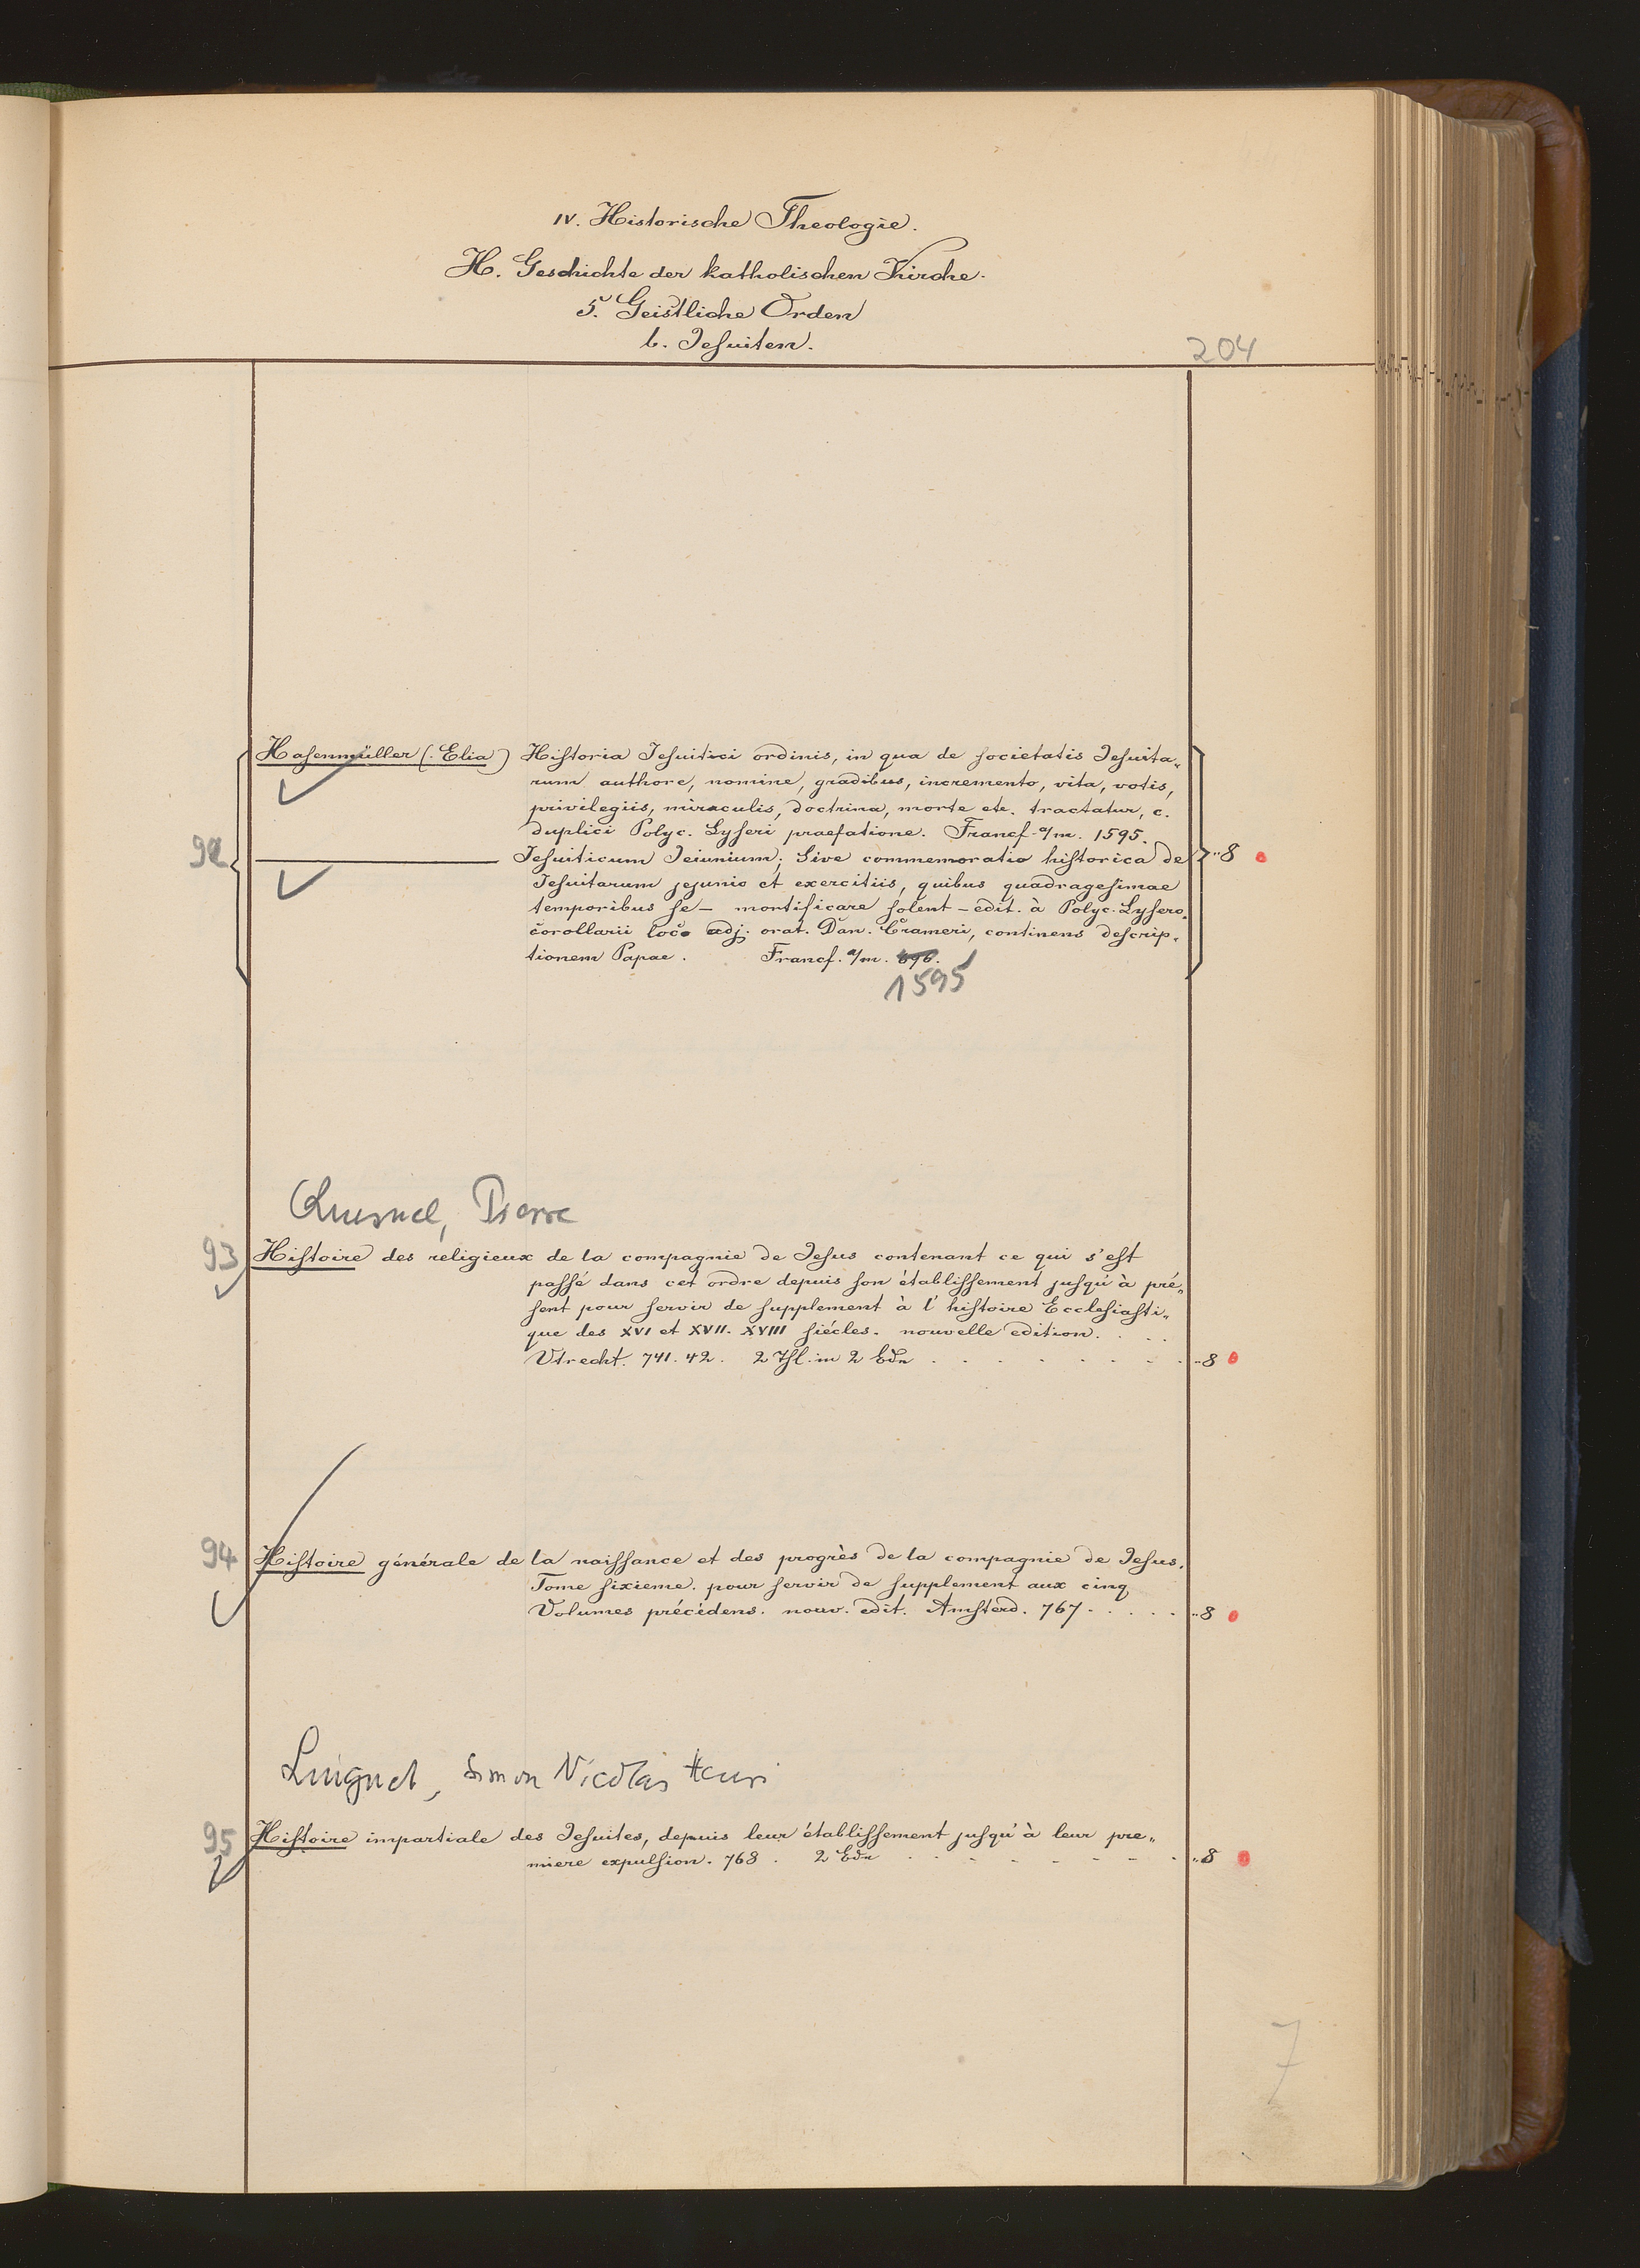 IV. Historische Theologie.
H. Geschichte der katholischen Kirche.
5. Geistliche Orden
b. Jeſuiten.
204
92
Haſenmüller (Elia) Hiſtoria Jeſuitici ordinis, in qua de ſocietatis Jeſuita„
rum authore, nomine, gradibus, incremento, vita, votis,
privilegiis, miraculis, doctrina, morte etc. tractatur, c.
duplici Polyc. Lyſeri praefatione. Francf. a/m. 1595.
——— Jeſuiticum Jeiunium; Sive commemoratio hiſtorica de „8
Jeſuitarum jejunio et exercitiis, quibus quadrageſimae
temporibus ſe – mortificare ſolent – edit. à Polyc. Lyſero.
corollarii loco adj. orat. Dan. Crameri, continens deſcrip„
tionem Papae. Francf. a/m.
1595
Quesnel, Pierre
93 Hiſtoire des religieux de la compagnie de Jeſus contenant ce qui s'eſt
paſſé dans cet ordre depuis ſon établiſſement juſqu'à pré„
ſent pour ſervir de ſupplement à l'hiſtoire Eccleſiaſti„
que des XVI et XVII. XVIII ſiécles. nouvelle edition. . . .
Utrecht. 741. 42. 2 Thl. in 2 Bdn . . . . . . . „8
94 Hiſtoire générale de la naiſſance et des progrès de la compagnie de Jeſus.
Tome ſixieme. pour ſervir de ſupplement aux cinq
Volumes précédens. nouv. edit. Amſterd. 767 . . . . . „8
Linguet, Simon Nicolas Henri
95 Hiſtoire impartiale des Jeſuites, depuis leur établiſſement juſqu'à leur pre„
miere expulſion. 768. 2 Bdn . . . . . . . „8
7